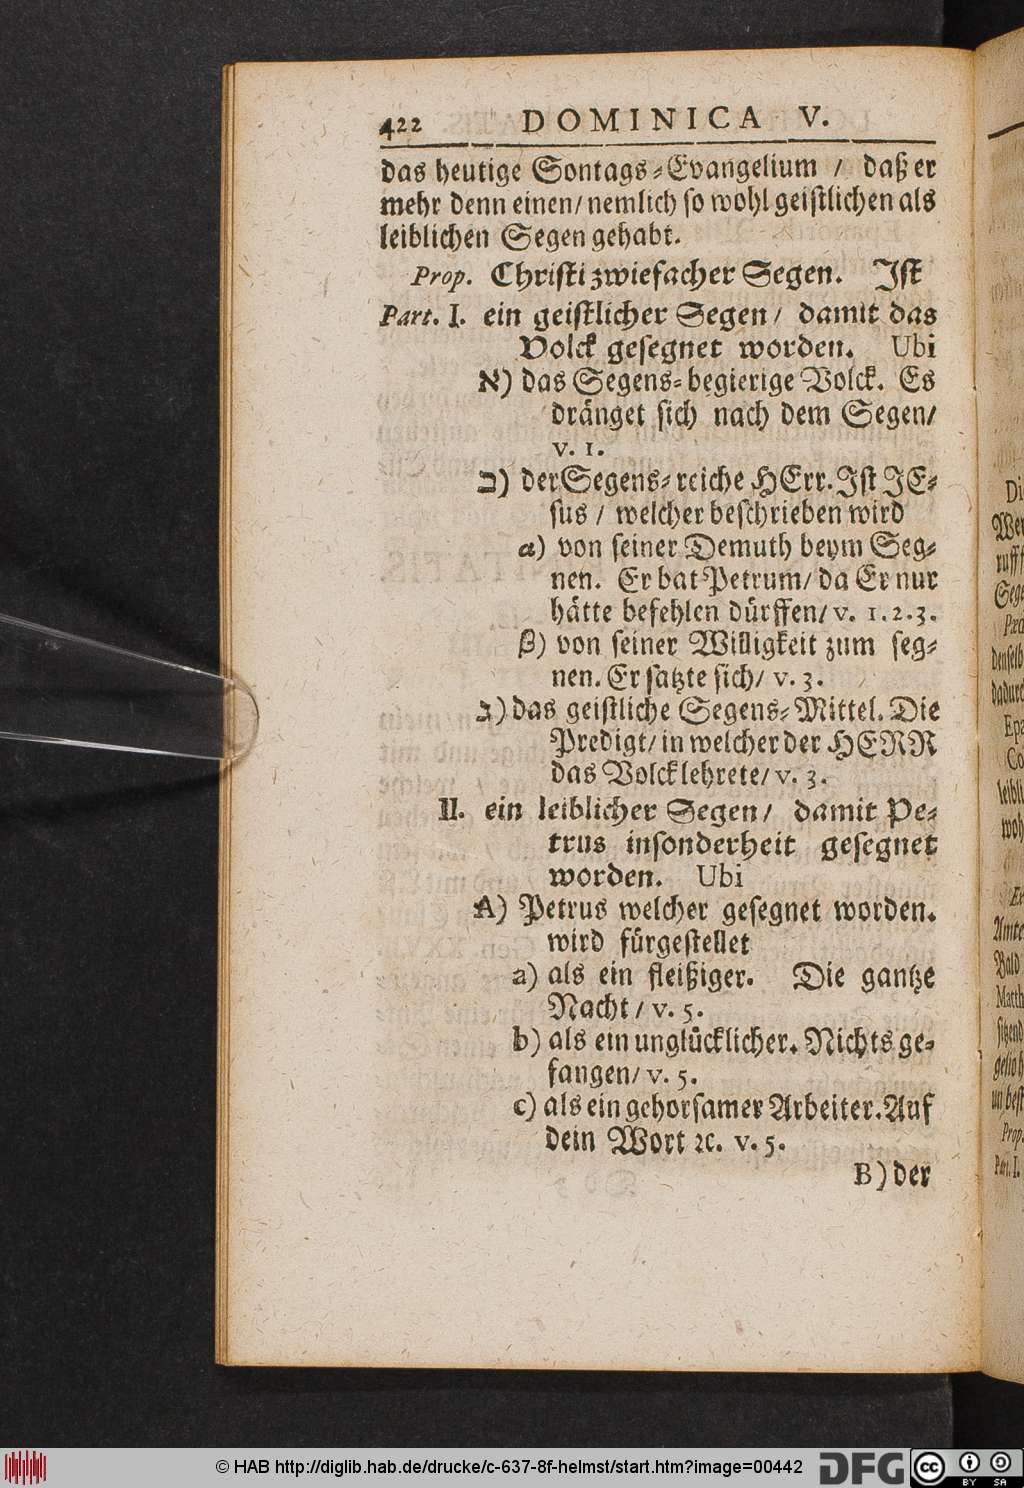 422 DOMINICA V.
das heutige Sontags-Evangelium / daß er
mehr denn einen/ nemlich so wohl geistlichen als
leiblichen Segen gehabt.
Prop. Christi zwiefacher Segen. Ist
Part. I. ein geistlicher Segen/ damit das
Volck gesegnet worden. Ubi
א) das Segens-begierige Volck. Es
dränget sich nach dem Segen/
v. 1.
ב) der Segens-reiche HErr. Ist JE-
sus / welcher beschrieben wird
α) von seiner Demuth beym Seg-
nen. Er bat Petrum/ da Er nur
hätte befehlen dürffen/ v. 1.2.3.
β) von seiner Willigkeit zum seg-
nen. Er satzte sich/ v. 3.
ג) das geistliche Segens-Mittel. Die
Predigt/ in welcher der HERR
das Volck lehrete/ v. 3.
II. ein leiblicher Segen/ damit Pe-
trus insonderheit gesegnet
worden. Ubi
A) Petrus welcher gesegnet worden.
wird fürgestellet
a) als ein fleißiger. Die gantze
Nacht / v. 5.
b) als ein unglücklicher. Nichts ge-
fangen/ v. 5.
c) als ein gehorsamer Arbeiter. Auf
dein Wort ꝛc. v. 5.
B) der
© HAB http://diglib.hab.de/drucke/c-637-8f-helmst/start.htm?image=00442
DFG
cc BY SA